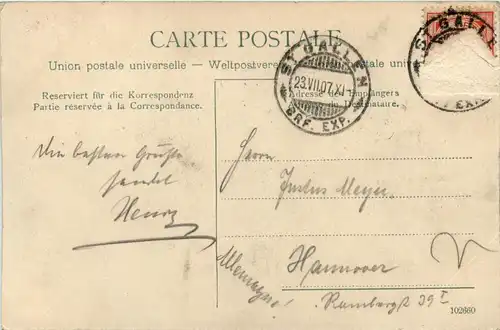 CARTE POSTALE
Union postale universelle – Weltpostverein
postale univ
Reserviert für die Korrespondenz
Partie réservée à la Correspondance.
Adresse
Empfängers
du Destinataire.
ST. GALLEN
23.VII.07.XI
BRF. EXP.
ST. GALL
EXP.
Die besten Grüße
sendet
Henry
Herrn
Justus Meyer
Hannover
Rambergstr 39 I
Allemagne!
102660